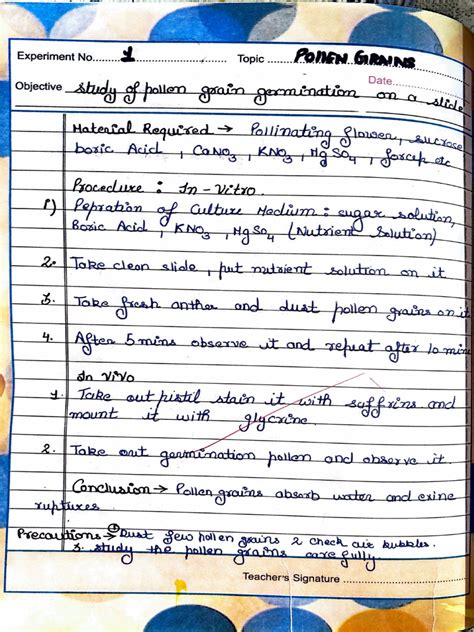 Experiment No. 1 Topic Pollen Grains
Date
Objective study of pollen grain germination on a slide
Material Required → Pollinating flower, sucrose
boric Acid, CaNO3, KNO3, MgSO4, forcep etc
Procedure : In-Vitro.
1) Pepration of Culture Medium : sugar solution,
Boric Acid, KNO3, MgSO4 (Nutrient Solution)
2. Take clean slide, put nutrient solution on it
3. Take fresh anther and dust pollen grains on it
4. After 5 mins observe it and repeat after 10 mins
In Vivo
1. Take out pistil stain it with saffrins and
mount it with glycrine.
2. Take out germination pollen and observe it.
Conclusion → Pollen grains absorb water and exine
ruptures
Precautions → ① Dust few pollen grains 2 check air bubbles.
3. study the pollen grains carefully.
Teacher's Signature